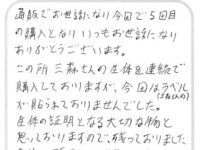 通販でお世話になり今回で5回目
の購入となり いつもお世話になり
ありがとうございます。
この所 三森さんの生体を連続で
購入しておりますが、今回はラベル
が貼られておりませんでした。(三森さんの)
生体の証明となる大切な物と
思っておりますので、残っておりました